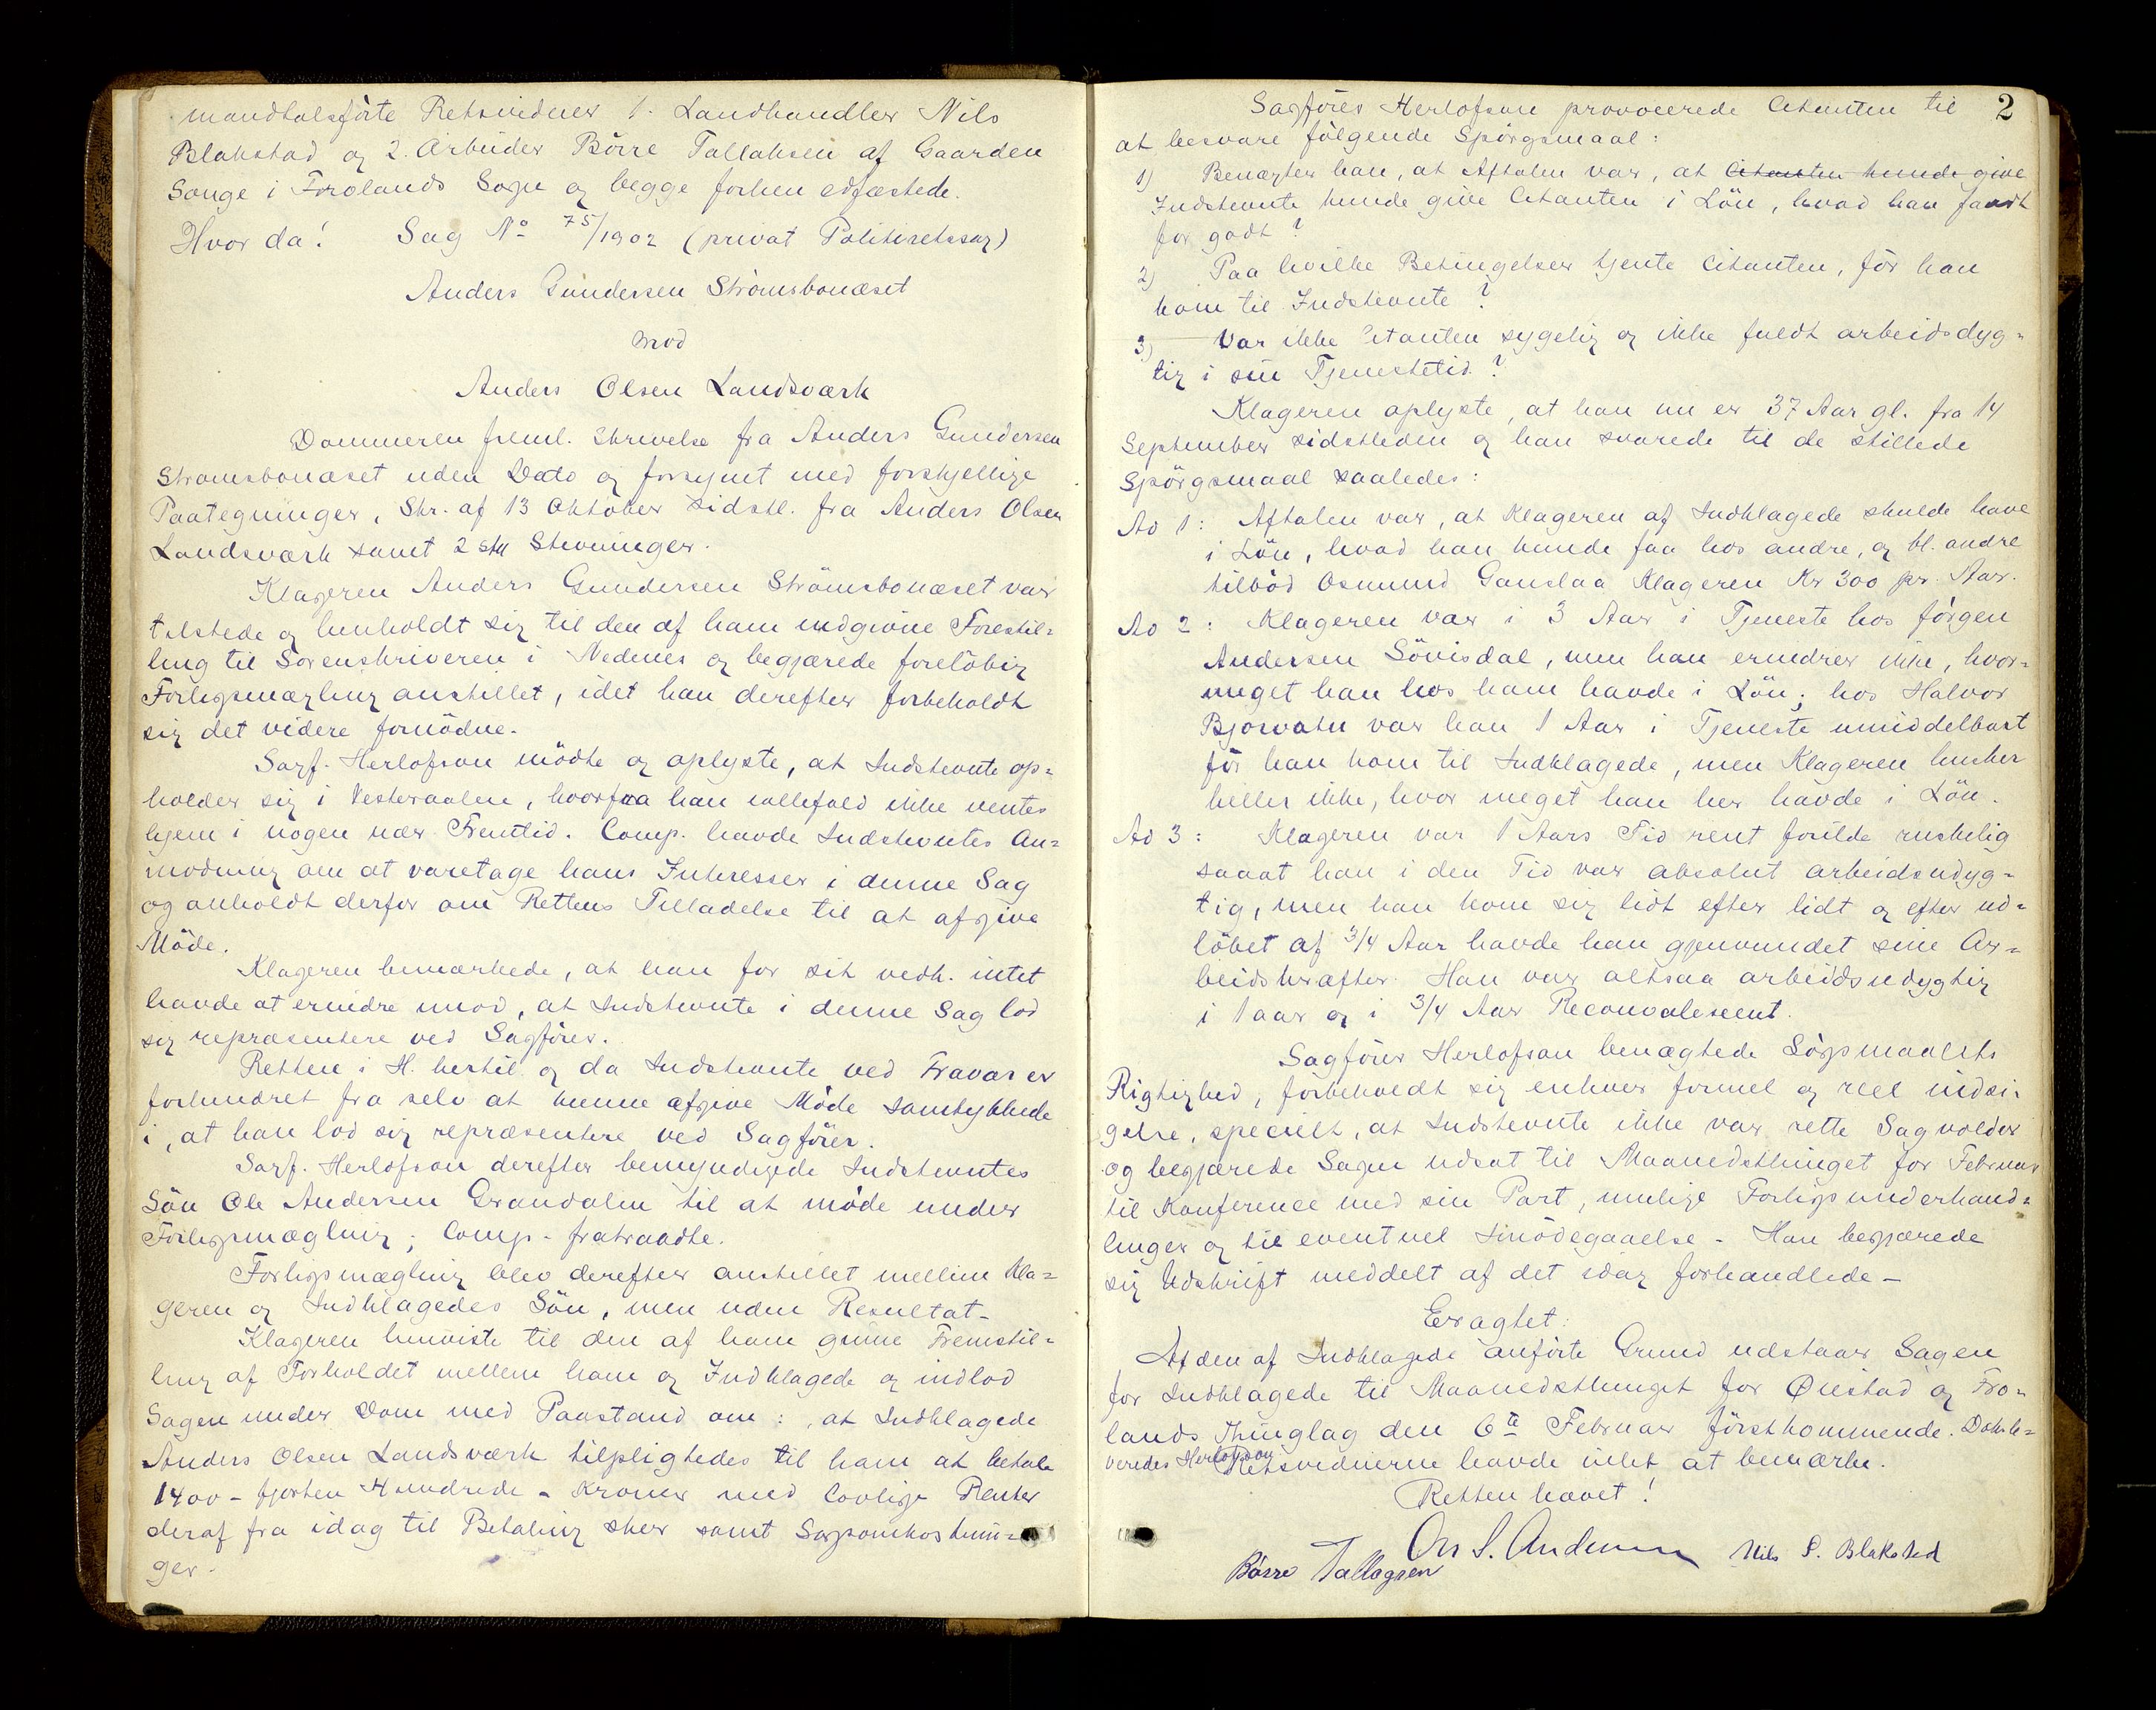 mandtalsførte Retsvidner 1. Landhandler Nils
Blakstad og 2. Arbeider Börre Tallaksen af Gaarden
Songe i Frolands Sogn og begge forhen edfæstede.
Hvor da! Sag No 75/1902 (privat Politiretssag)
Anders Gundersen Strömsbonæset
mod
Anders Olsen Landsværk
Dommeren freml. Skrivelse fra Anders Gundersen
Strømsbonæset uden Dato og forsynet med forskjellige
Paategninger, Skr. af 13 Oktober sidstl. fra Anders Olsen
Landsværk samt 2 stk Stevninger.
Klageren Anders Gundersen Strömsbonæset var
tilstede og henholdt sig til den af ham indgivne Forestil=
ling til Sorenskriveren i Nedenes og begjærede foreløbig
Forligsmægling anstillet, idet han derefter forbeholdt
sig det videre fornödne.
Sagf. Herlofson mödte og oplyste, at Indstevnte op=
holder sig i Vesteraalen, hvorfra han iallefald ikke ventes
hjem i nogen nær Fremtid. Comp. havde Indstevntes An=
modning om at varetage hans Interesser i denne Sag
og anholdt derfor om Rettens Tilladelse til at afgive
Möde.
Klageren bemærkede, at han for sit vedk. intet
havde at erindre imod, at Indstevnte i denne Sag lod
sig repræsentere ved Sagförer.
Retten i H. hertil og da Indstevnte ved Fravær er
forhindret fra selv at kunne afgive Möde samtykkede
i, at han lod sig repræsentere ved Sagförer.
Sagf. Herlofson derefter bemyndigede Indstevntes
Sön Ole Andersen Grandalen til at möde under
Forligsmægling; Comp. fratraadte.
Forligsmægling blev derefter anstillet mellem Kla=
geren og Indklagedes Sön, men uden Resultat.
Klageren henviste til den af ham givne Fremstil=
ling af Forholdet mellem ham og Indklagede og indlod
Sagen under Dom med Paastand om: at Indklagede
Anders Olsen Landsværk tilpligtedes til ham at betale
1400 - fjorten Hundrede - Kroner med lovlige Renter
deraf fra idag til Betaling sker samt Sagsomkostnin=
ger.
2
Sagförer Herlofson provocerede Citanten til
at besvare fölgende Spörgsmaal:
1) Benægter han, at Aftalen var, at Citanten kunde give
Indstevnte kunde give Citanten i Lön, hvad han fandt
for godt?
2) Paa hvilke Betingelser tjente Citanten, för han
kom til Indstevnte?
3) Var ikke Citanten sygelig og ikke fuldt arbeidsdyg=
tig i sin Tjenestetid?
Klageren oplyste, at han nu er 37 Aar gl. fra 14
September sidstleden og han svarede til de stillede
Spörgsmaal saaledes:
Ad 1: Aftalen var, at Klageren af Indklagede skulde have
i Lön, hvad han kunde faa hos andre, og bl. andre
tilböd Osmund Ganslaa Klageren Kr 300 pr. Aar.
Ad 2: Klageren var i 3 Aar i Tjeneste hos Jörgen
Andersen Sövisdal, men han erindrer ikke, hvor=
meget han hos ham havde i Lön; hos Halvor
Bjorvatn var han 1 Aar i Tjeneste umiddelbart
för han kom til Indklagede, men Klageren husker
heller ikke, hvor meget han her havde i Lön.
Ad 3: Klageren var 1 Aars Tid rent forilde
saaat han i den Tid var absolut arbeidsudyg=
tig, men han kom sig lidt efter lidt og efter ud=
löbet af 3/4 Aar havde han gjenvundet sine Ar=
beidskræfter. Han var altsaa arbeidsudygtig
i 1 aar og i 3/4 Aar Reconvalescent.
Sagförer Herlofson benægtede Sögsmaalets
Rigtighed, forbeholdt sig enhver formel og reel indsi=
gelse, specielt, at Indstevnte ikke var rette Sagvolder
og begjærede Sagen udsat til Maanedsthinget for Februar
til Konference med sin Part, mulige Forligsunderhand=
linger og til eventuel Imödegaaelse. Han begjærede
sig Udskrift meddelt af det idag forhandlede.
Eragtet:
Af den af Indklagede anførte Grund udstaar Sagen
for Indklagede til Maanedsthinget for Øiestad og Fro=
lands Thinglag den 6te Februar förstkommende. Dok. le=
veredes Herlofson
Retsvidnerne havde intet at bemærke.
Retten hævet!
On S. Andersen Nils S. Blakstad
Börre Tallagsen